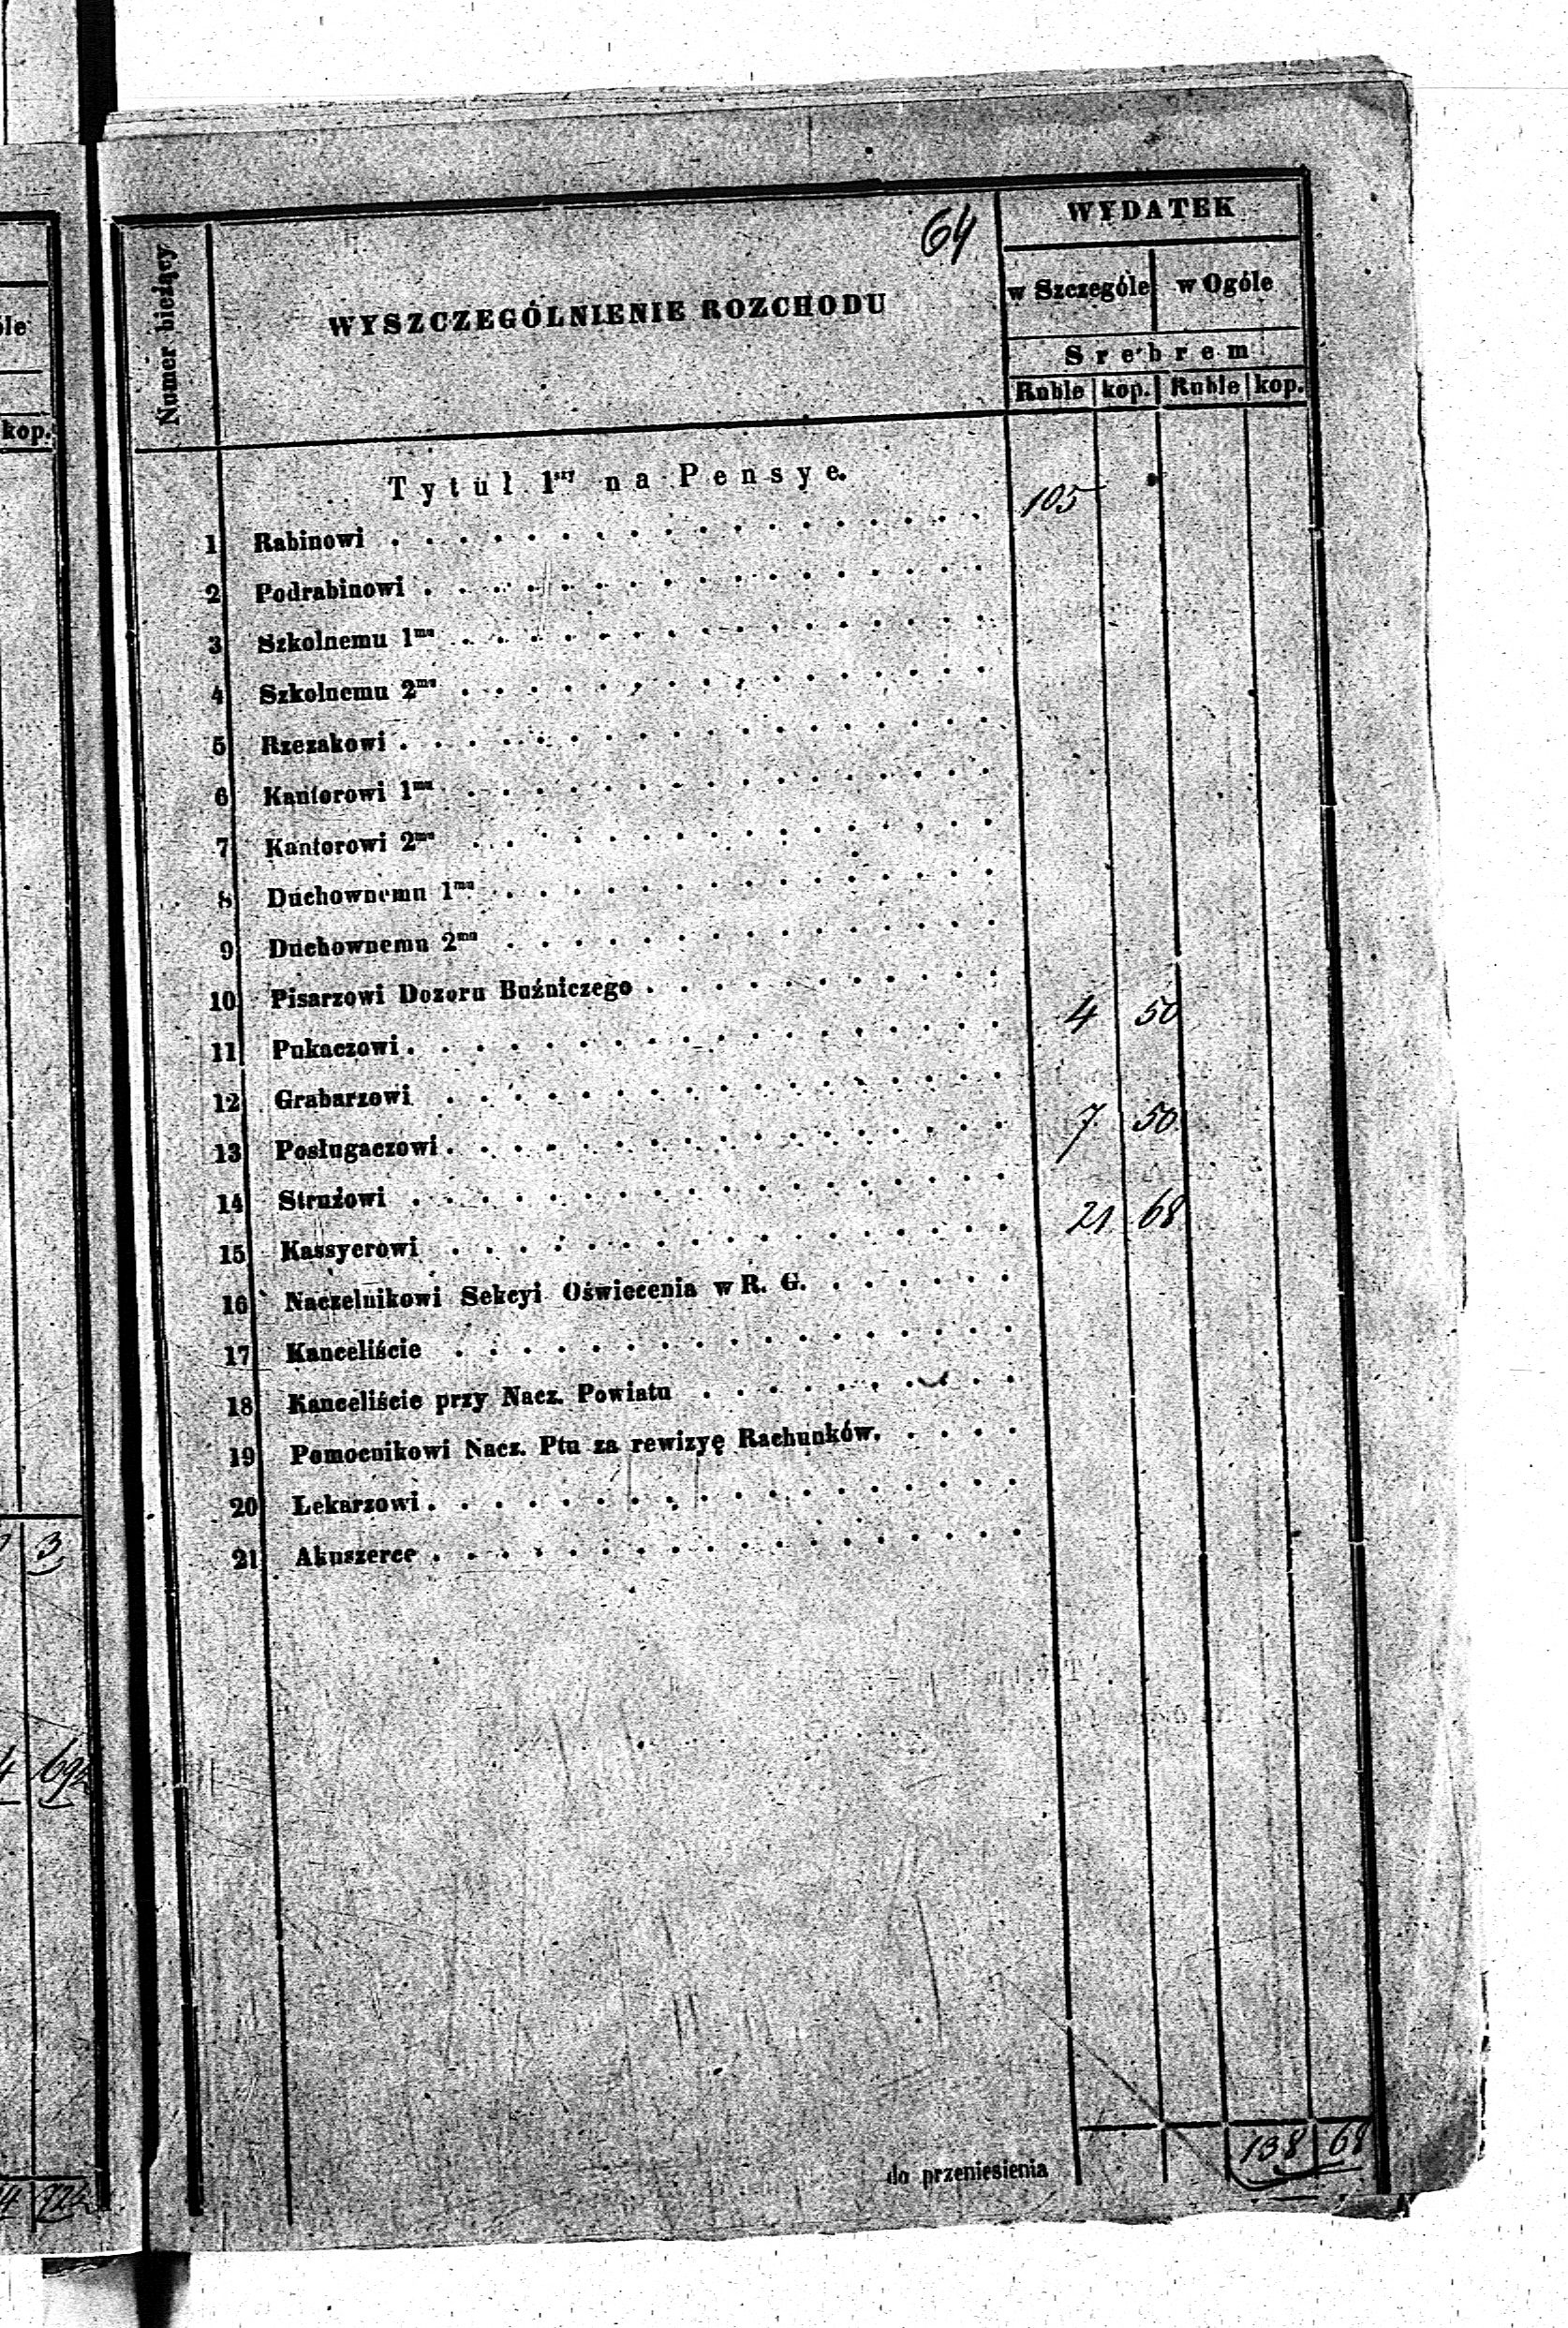 64
WYDATEK
Numer bieżący
WYSZCZEGÓLNIENIE ROZCHODU
w Szczególe w Ogóle
Srebrem
Ruble kop. Ruble kop.
Tytuł 1szy na Pensye.
1 Rabinowi 105
2 Podrabinowi
3 Szkolnemu 1mu
4 Szkolnemu 2mu
5 Rzezakowi
6 Kantorowi 1mu
7 Kantorowi 2mu
8 Duchownemu 1mu
9 Duchownemu 2mu
10 Pisarzowi Dozoru Buźniczego
11 Pukaczowi 4 50
12 Grabarzowi
13 Posługaczowi 7 50
14 Strużowi
15 Kassyerowi 21 68
16 Naczelnikowi Sekcyi Oświecenia w R. G.
17 Kanceliście
18 Kanceliście przy Nacz. Powiatu
19 Pomocnikowi Nacz. Ptu za rewizyę Rachunków.
20 Lekarzowi
21 Akuszerce
do przeniesienia 138 68
kop.
3